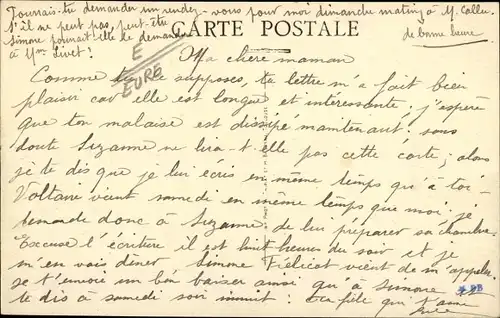 Pourrais-tu demander un rendez-vous pour moi dimanche matin à M. Callu
S'il ne peut pas, peut-être
Simone pourrait-elle le demander
à Mme Livet!
de bonne heure
CARTE POSTALE
E
EURE
Ma chère maman
Comme tu supposes, ta lettre m'a fait bien
plaisir car elle est longue et intéressante; j'espère
que ton malaise est dissipé maintenant: sans
doute Suzanne ne lira-t-elle pas cette carte; alors
je te dis que je lui écris en même temps qu'à toi-
Voltaire vient samedi en même temps que moi, je
demande donc à Suzanne de lui préparer sa chambre.
Excuse l'écriture il est huit heures du soir et je
m'en vais dîner Simone vient de m'appeler
je t'envoie un bon baiser ainsi qu'à Simone et
te dis à samedi soir minuit: Ta fille qui t'aime